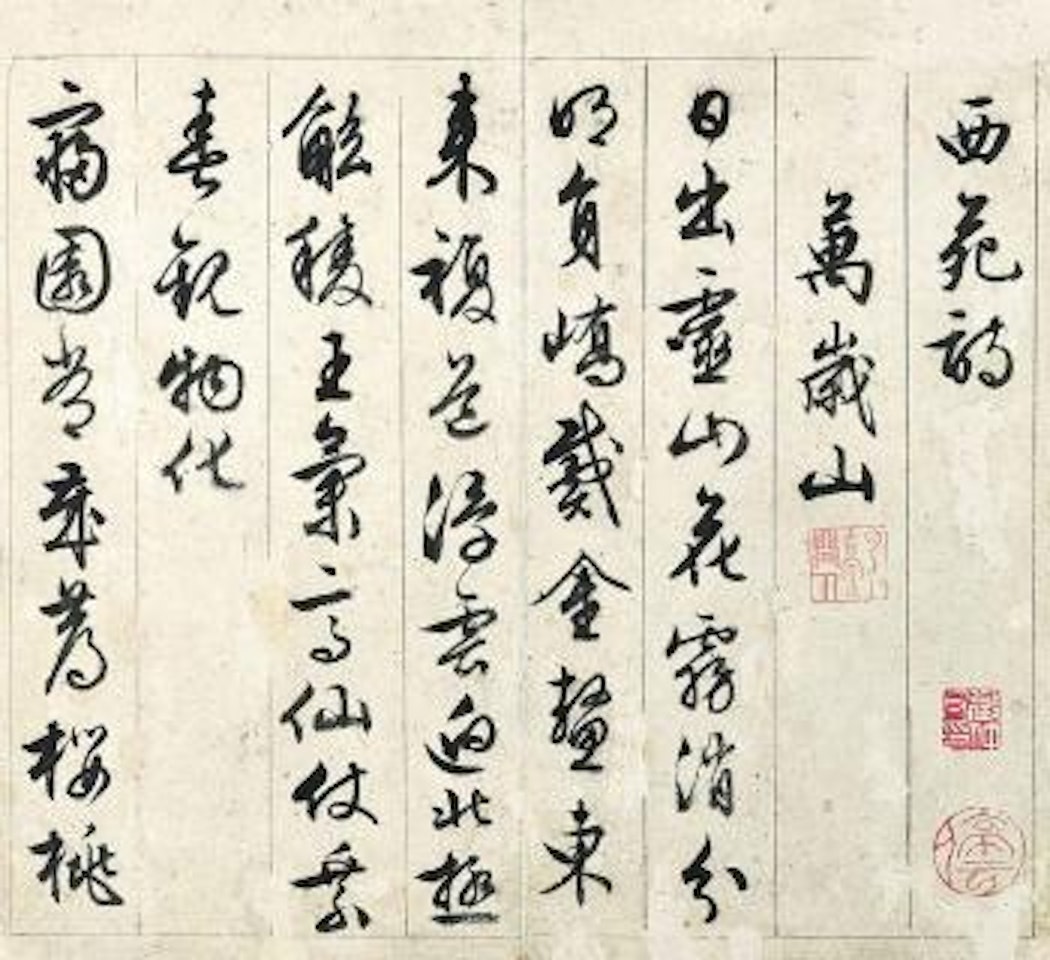 西苑詩
萬歲山
日出靈山花霧消分
明員嶠戴金鰲東
來複道浮雲迥北極
觚稜王氣高仙仗乘
春觀物化
寢園常歲薦櫻桃